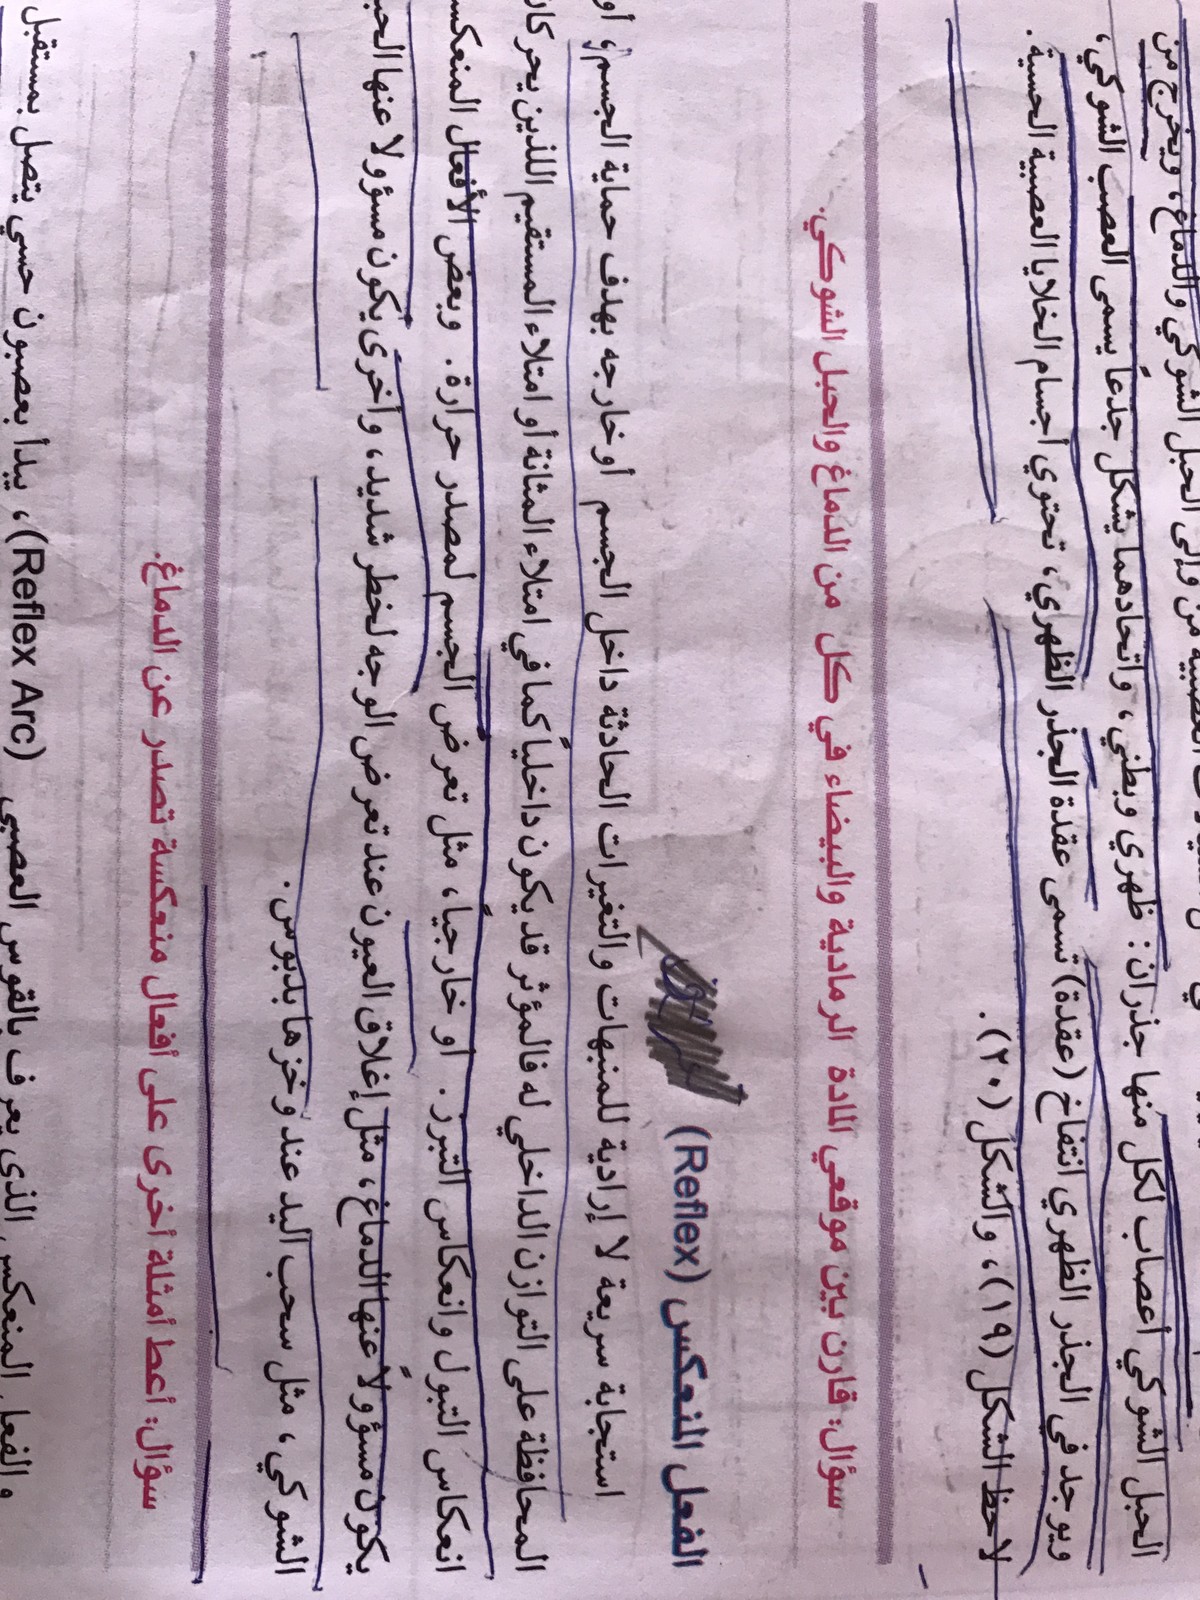 من وإلى الحبل الشوكي والدماغ، ويخرج من
الحبل الشوكي أعصاب لكل منها جذران: ظهري وبطني، واتحادهما يشكل جذعاً يسمى العصب الشوكي،
ويوجد في الجذر الظهري انتفاخ (عقدة) تسمى عقدة الجذر الظهري، تحتوي أجسام الخلايا العصبية الحسية.
لاحظ الشكل (١٩)، والشكل (٢٠).
سؤال: قارن بين موقعي المادة الرمادية والبيضاء في كل من الدماغ والحبل الشوكي.
الفعل المنعكس (Reflex)
استجابة سريعة لا إرادية للمنبهات والتغيرات الحادثة داخل الجسم أو خارجه بهدف حماية الجسم، أو
المحافظة على التوازن الداخلي له فالمؤثر قد يكون داخلياً كما في امتلاء المثانة أو امتلاء المستقيم اللذين يحركان
انعكاس التبول وانعكاس التبرز. او خارجياً، مثل تعرض الجسم لمصدر حرارة. وبعض الأفعال المنعكس
يكون مسؤولاً عنها الدماغ، مثل إغلاق العيون عند تعرض الوجه لخطر شديد، وأخرى يكون مسؤولا عنها الحب
الشوكي، مثل سحب اليد عند وخزها بدبوس.
سؤال: أعط أمثلة أخرى على أفعال منعكسة تصدر عن الدماغ.
والفعل المنعكس الذي يعرف بالقوس العصبي (Reflex Arc)، يبدأ بعصبون حسي يتصل بمستقبل